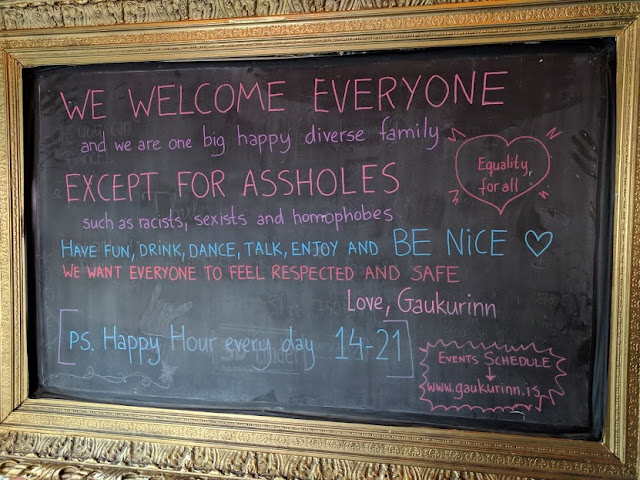 WE WELCOME EVERYONE
and we are one big happy diverse family
EXCEPT FOR ASSHOLES
such as racists, sexists and homophobes
Equality
for all
HAVE FUN, DRINK, DANCE, TALK, ENJOY AND BE NiCE
WE WANT EVERYONE TO FEEL RESPECTED AND SAFE
Love, Gaukurinn
PS. Happy Hour every day 14-21
EVENTS SCHEDULE
www.gaukurinn.is